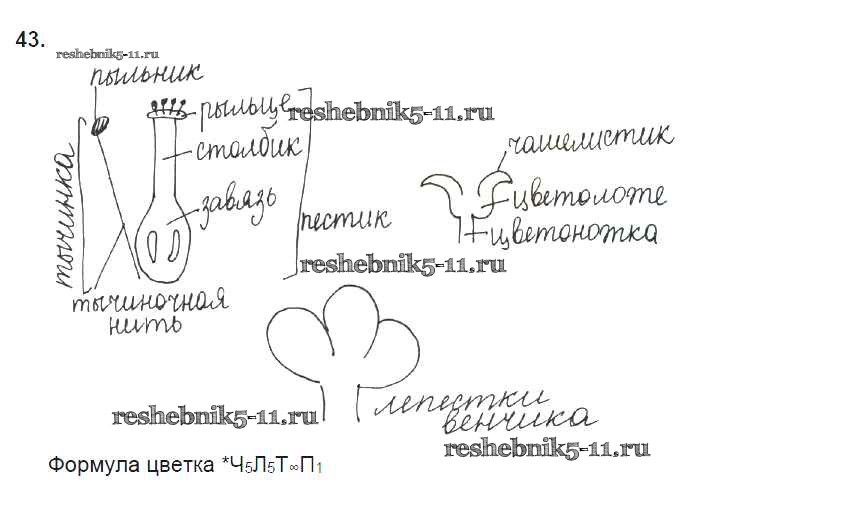 43.
reshebnik5-11.ru
пыльник
рыльце
reshebnik5-11.ru
столбик
чашелистик
тычинка
завязь
цветоложе
пестик
цветоножка
reshebnik5-11.ru
тычиночная
нить
reshebnik5-11.ru
лепестки
венчика
reshebnik5-11.ru
Формула цветка *Ч5Л5Т∞П1